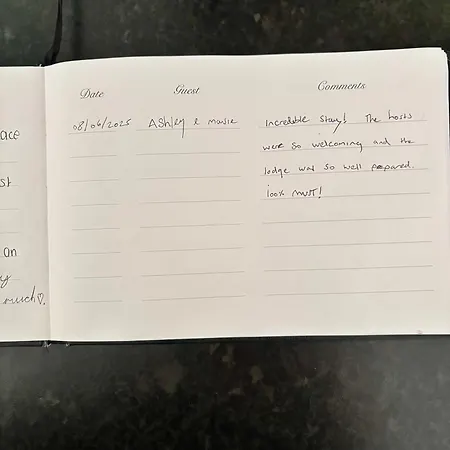 ace
st
an
y
much♡.
Date Guest Comments
08/06/2025 Ashley & Incredible stay! The hosts
were so welcoming and the
lodge was so well prepared.
100% must!